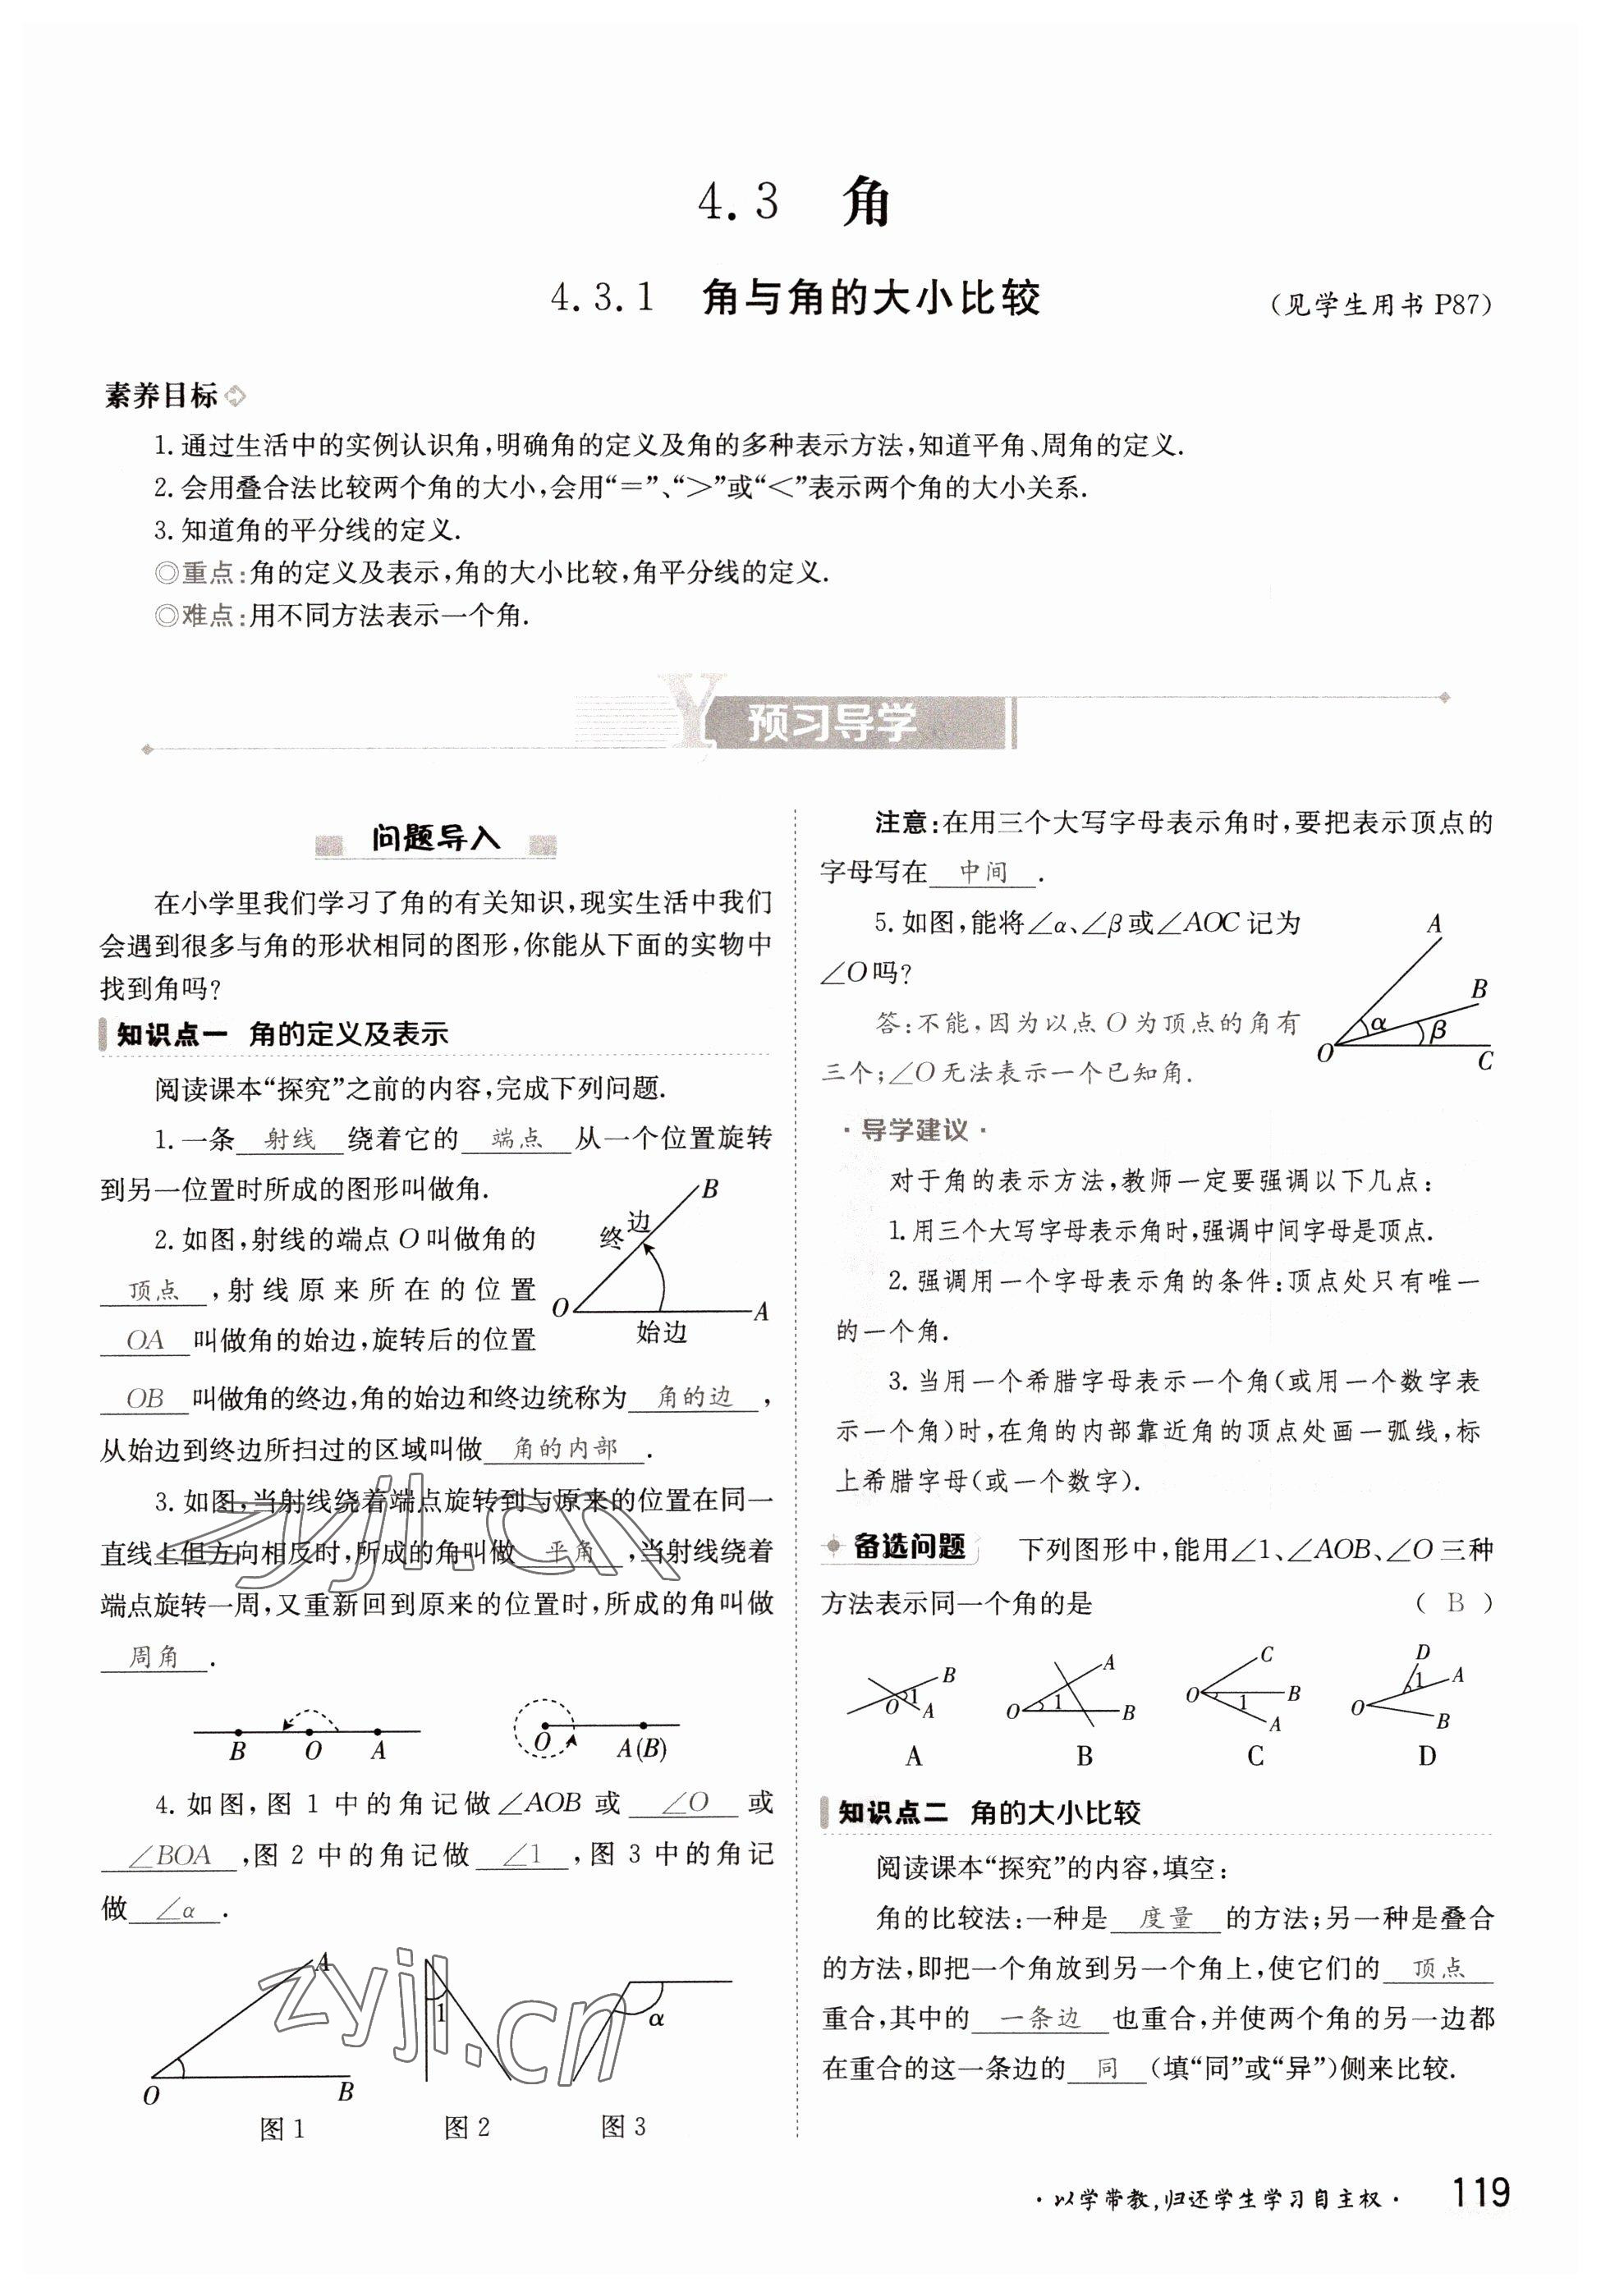 4.3 角
4.3.1 角与角的大小比较 (见学生用书 P87)
素养目标
1.通过生活中的实例认识角,明确角的定义及角的多种表示方法,知道平角、周角的定义.
2.会用叠合法比较两个角的大小,会用“=”、“>”或“<”表示两个角的大小关系.
3.知道角的平分线的定义.
◎重点:角的定义及表示,角的大小比较,角平分线的定义.
◎难点:用不同方法表示一个角.
Y 预习导学
问题导入
在小学里我们学习了角的有关知识,现实生活中我们
会遇到很多与角的形状相同的图形,你能从下面的实物中
找到角吗?
知识点一 角的定义及表示
阅读课本“探究”之前的内容,完成下列问题.
1.一条 射线 绕着它的 端点 从一个位置旋转
到另一位置时所成的图形叫做角.
2.如图,射线的端点 O 叫做角的
顶点 ,射线原来所在的位置
OA 叫做角的始边,旋转后的位置
OB 叫做角的终边,角的始边和终边统称为 角的边 ,
从始边到终边所扫过的区域叫做 角的内部 .
B
终边
O
A
始边
3.如图,当射线绕着端点旋转到与原来的位置在同一
直线上但方向相反时,所成的角叫做 平角 ,当射线绕着
端点旋转一周,又重新回到原来的位置时,所成的角叫做
周角 .
B O A
O A(B)
4.如图,图 1 中的角记做∠AOB 或 ∠O 或
∠BOA ,图 2 中的角记做 ∠1 ,图 3 中的角记
做 ∠α .
A
O B
1
α
图 1 图 2 图 3
zyjl.cn
zyjl.cn
注意:在用三个大写字母表示角时,要把表示顶点的
字母写在 中间 .
5.如图,能将∠α、∠β或∠AOC 记为
∠O 吗?
答:不能,因为以点 O 为顶点的角有
三个;∠O 无法表示一个已知角.
A
B
α
β
O
C
·导学建议·
对于角的表示方法,教师一定要强调以下几点:
1.用三个大写字母表示角时,强调中间字母是顶点.
2.强调用一个字母表示角的条件:顶点处只有唯一
的一个角.
3.当用一个希腊字母表示一个角(或用一个数字表
示一个角)时,在角的内部靠近角的顶点处画一弧线,标
上希腊字母(或一个数字).
备选问题 下列图形中,能用∠1、∠AOB、∠O 三种
方法表示同一个角的是 ( B )
B O 1 A
A O 1 B
C O B 1 A
D 1 A O B
A B C D
知识点二 角的大小比较
阅读课本“探究”的内容,填空:
角的比较法:一种是 度量 的方法;另一种是叠合
的方法,即把一个角放到另一个角上,使它们的 顶点
重合,其中的 一条边 也重合,并使两个角的另一边都
在重合的这一条边的 同 (填“同”或“异”)侧来比较.
·以学带教,归还学生学习自主权· 119